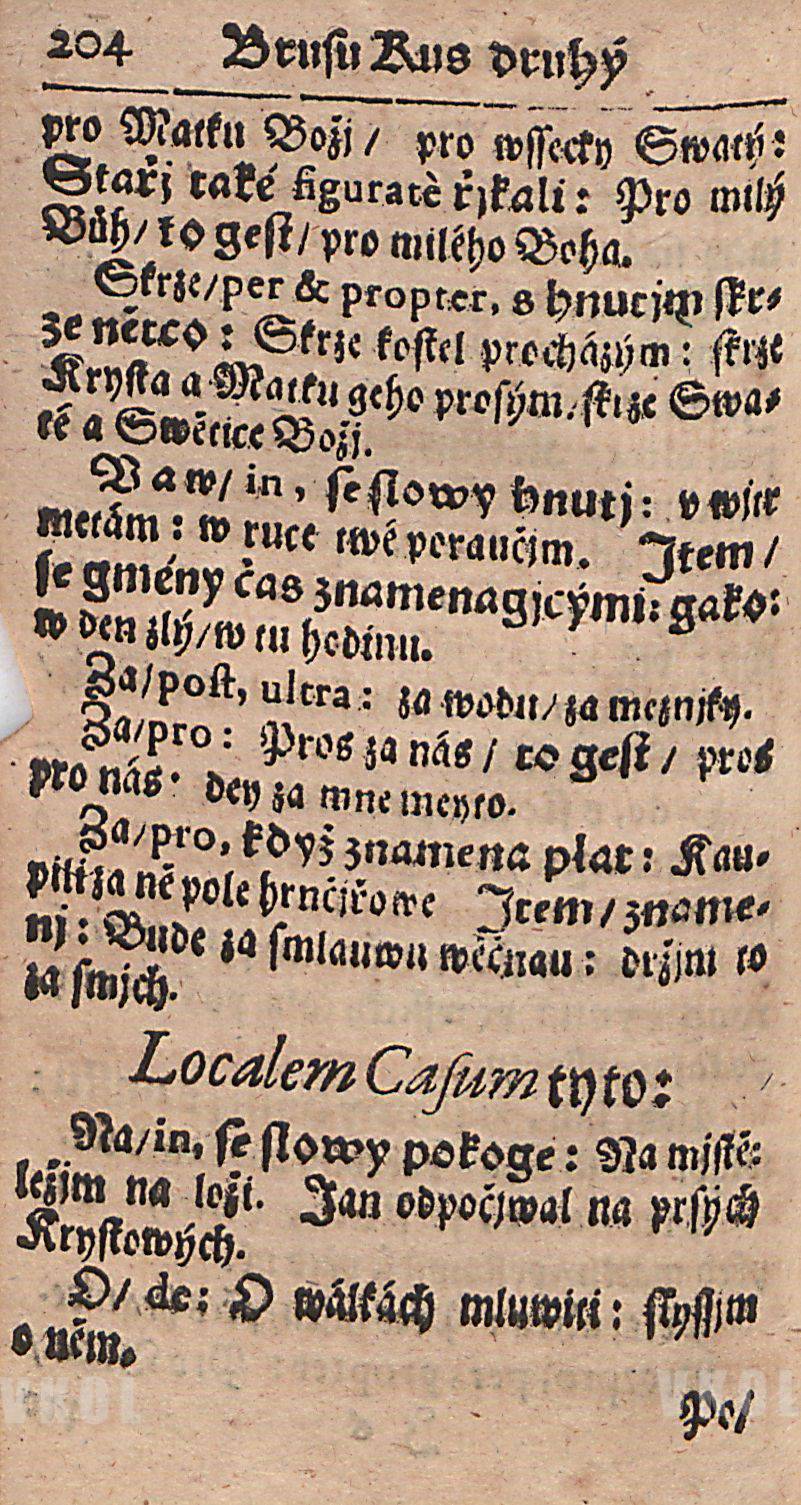 204 Brusu Kus druhý
pro Matku Božj / pro wssecky Swatý:
Stařj také figuratè řjkali: Pro milý
Bůh / to gest / pro milého Boha.
Skrze / per & propter, s hnutjm skr-
ze něčo: Skrze kostel procházým: skrze
Krysta a Matku geho prosým. skrze Swa-
té a Swětice Božj.
V a w / in, se slowy hnutj: v wjtr
metám: w ruce twé poraučjm. Jtem /
se gmény čas znamenagjcými: gako:
w den zlý / w tu hodinu.
Za / post, ultra: za wodu / za meznjky.
Za / pro: Pros za nás / to gest / pros
pro nás. dey za mne meyto.
Za / pro, když znamena plat: Kau-
pili za ně pole hrnčjřowe Jtem / zname-
nj: Bude za smlauwu wěčnau: držjm to
za swjch.
Localem Casum tyto:
Na / in, se slowy pokoge: Na mjstě:
ležjm na loži. Jan odpočjwal na prsých
Krystowých.
O / de: O wálkách mluwiti: slyssjm
o něm.
Po /
VKOL VKOL